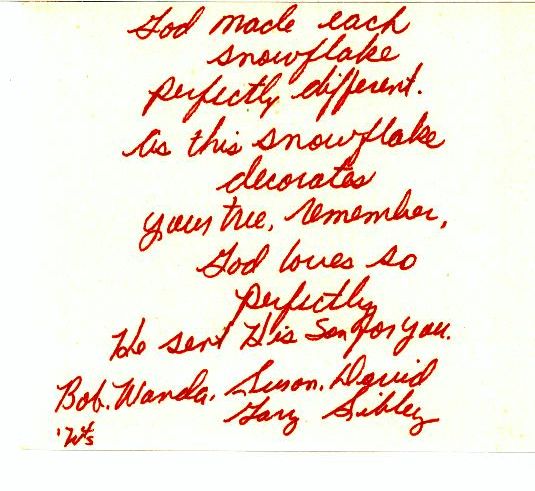 God made each
snowflake
perfectly different.
As this snowflake
decorates
your tree, remember,
God loves so
perfectly
He sent His Son for you.
Bob, Wanda, Susan, David
Gary Sibley